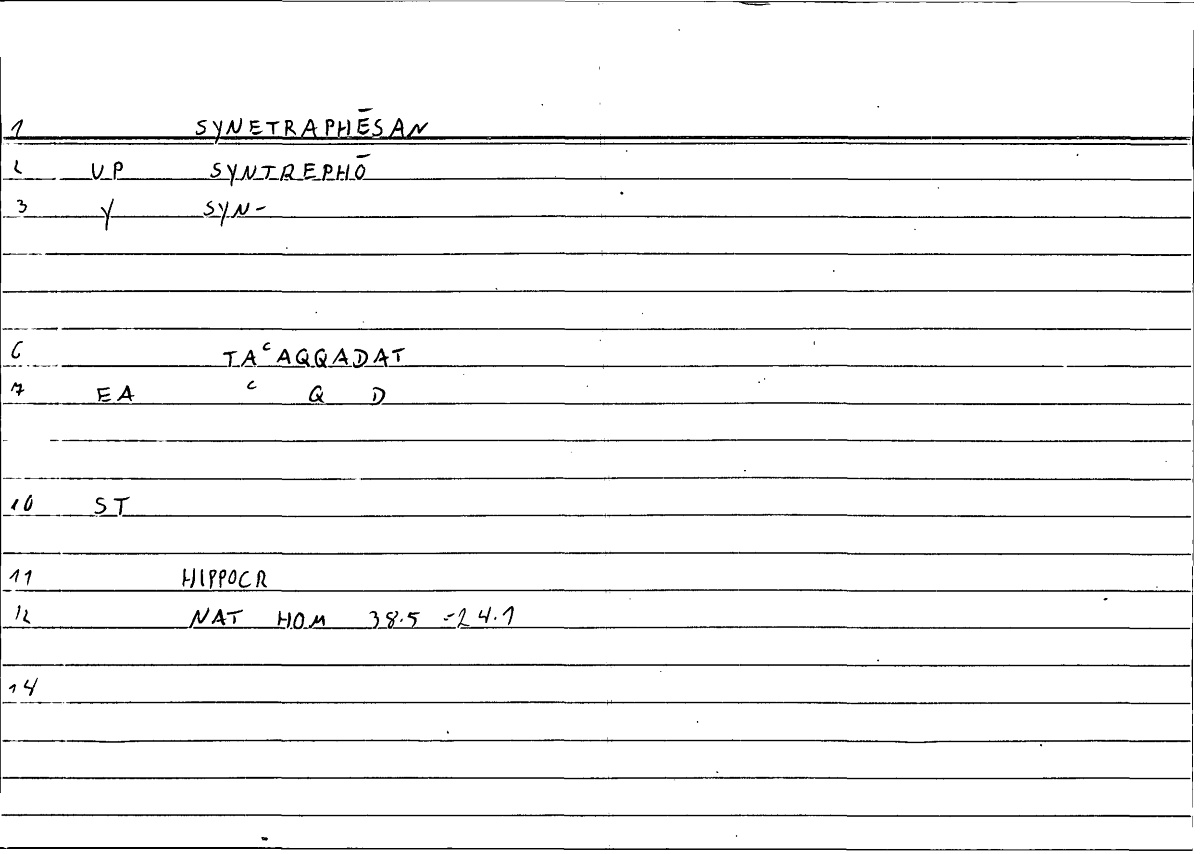 1 SYNETRAPHĒSAN
2 VP SYNTREPHŌ
3 Y SYN-
6 TAᶜAQQADAT
7 EA ᶜ Q D
10 ST
11 HIPPOCR
12 NAT HOM 38.5 =24.1
14